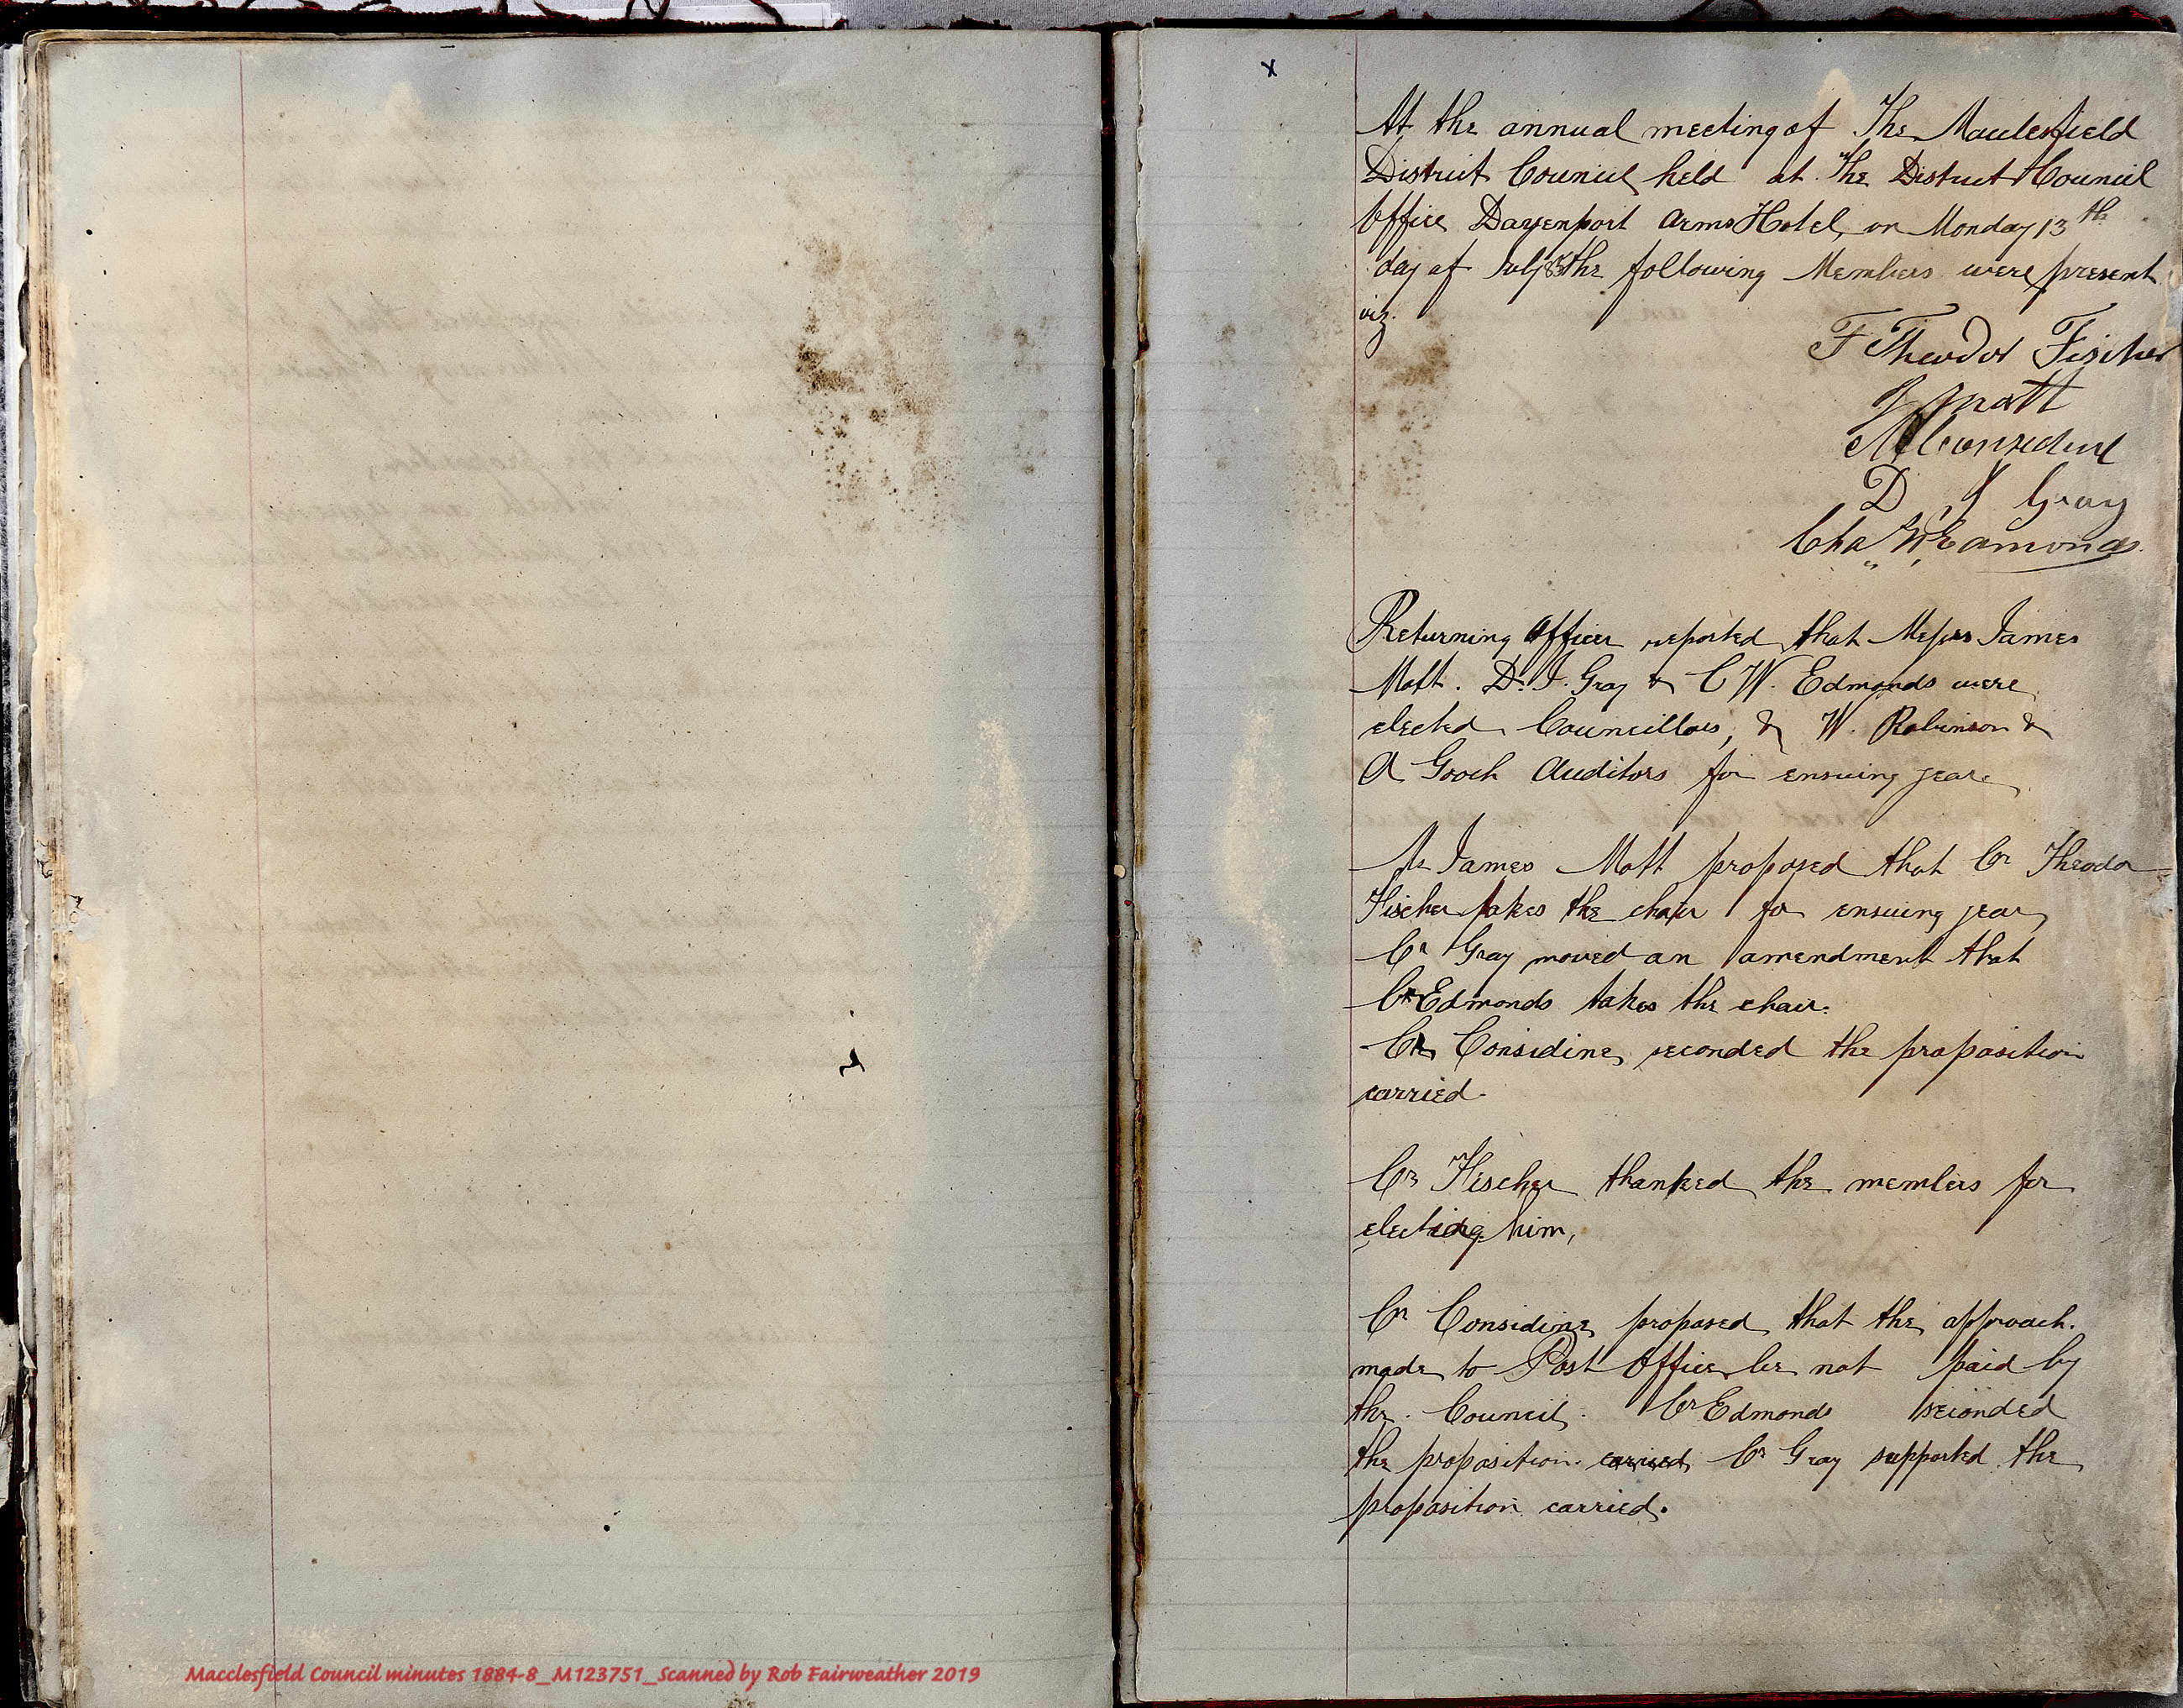 x
At the annual meeting of The Macclesfield
District Council held at The District Council
Office Davenport Arms Hotel, on Monday 13th
day of July 85 the following Members were present
viz.
F Theodor Fischer
J Mott
M Considine
D. J Gray
Chas W Edmonds
Returning Officer reported that Messrs James
Mott. D. J. Gray & C W. Edmonds were
elected Councillors, & W. Robinson &
A Gooch Auditors for ensuing year.
Mr James Mott proposed that Cr Theodor
Fischer takes the chair for ensuing year,
Cr Gray moved an amendment that
Cr Edmonds takes the chair.
Cr Considine seconded the proposition
carried.
Cr Fischer thanked the members for
electing him,
Cr Considine proposed that the approach.
made to Post Office be not paid by
the Council. Cr Edmonds seconded
the proposition. carried, Cr Gray supported the
proposition carried.
Macclesfield Council minutes 1884-8_M123751_Scanned by Rob Fairweather 2019